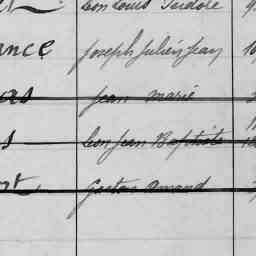 Léon Louis Isidore
ance Joseph Julien Jean
as Jean Marie
s Léon Jean Baptiste
Gaston Amand